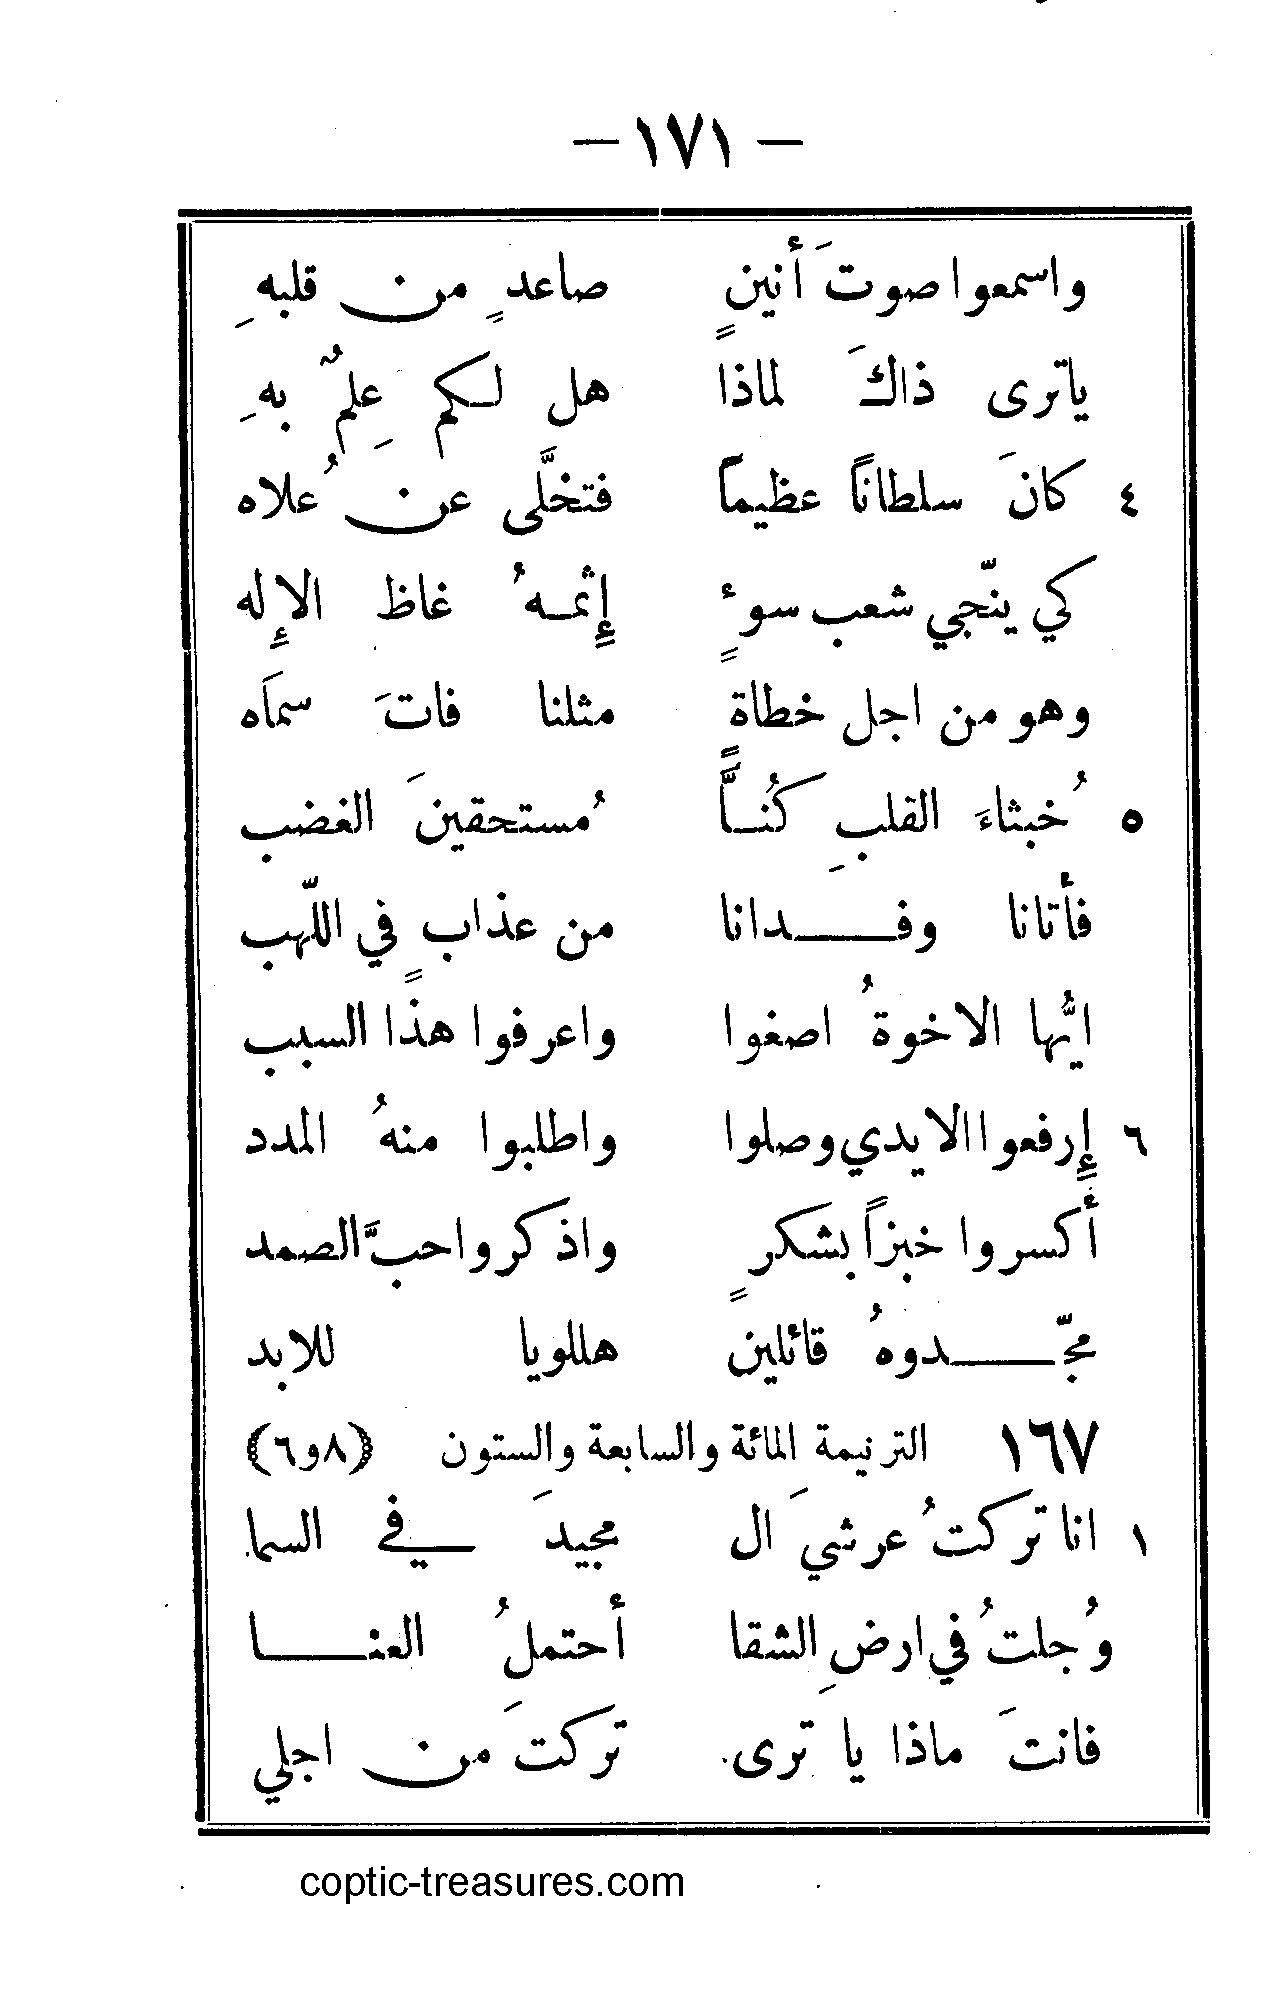 — ١٧١ —
واسمعوا صوتَ أنينٍ صاعدٍ من قلبهِ
ياترى ذاكَ لماذا هل لكم عِلمٌ بهِ
٤ كانَ سلطانًا عظيمًا فتخلَّى عن عُلاه
كي ينّجي شعب سوءٍ إِثمهُ غاظ الإِله
وهو من اجل خطاةٍ مثلنا فاتَ سمَاه
٥ خُبثاءَ القلبِ كُنَّا مُستحقينَ الغضب
فأتانا وفدانا من عذابٍ في اللّهب
ايُّها الاخوةُ اصغوا واعرفوا هذا السبب
٦ إِرفعوا الايدي وصلوا واطلبوا منهُ المدد
أكسروا خبزًا بشكرٍ واذكروا حبَّ الصمد
مجّدوهُ قائلين هللويا للابد
١٦٧ الترنيمة المائة والسابعة والستون (٨و٦)
١ انا تركتُ عرشيَ ال مجيدَ في السما
وجُلتُ في ارضِ الشقا أحتملُ العنا
فانتَ ماذا يا ترى تركتَ من اجلي
coptic-treasures.com